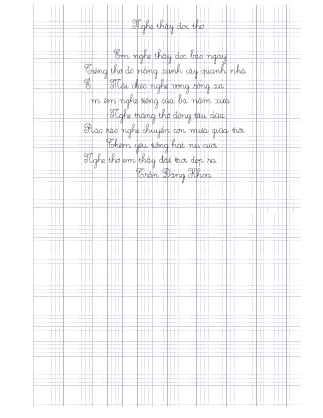 Nghe thầy đọc thơ
Em nghe thầy đọc bao ngày
Tiếng thơ đỏ nắng xanh cây quanh nhà
Mái chèo nghe vọng sông xa
êm êm nghe tiếng của bà năm xưa
Nghe trăng thở động tàu dừa
Rào rào nghe chuyển cơn mưa giữa trời
Thêm yêu tiếng hát nụ cười
Nghe thơ em thấy đất trời đẹp ra.
Trần Đăng Khoa